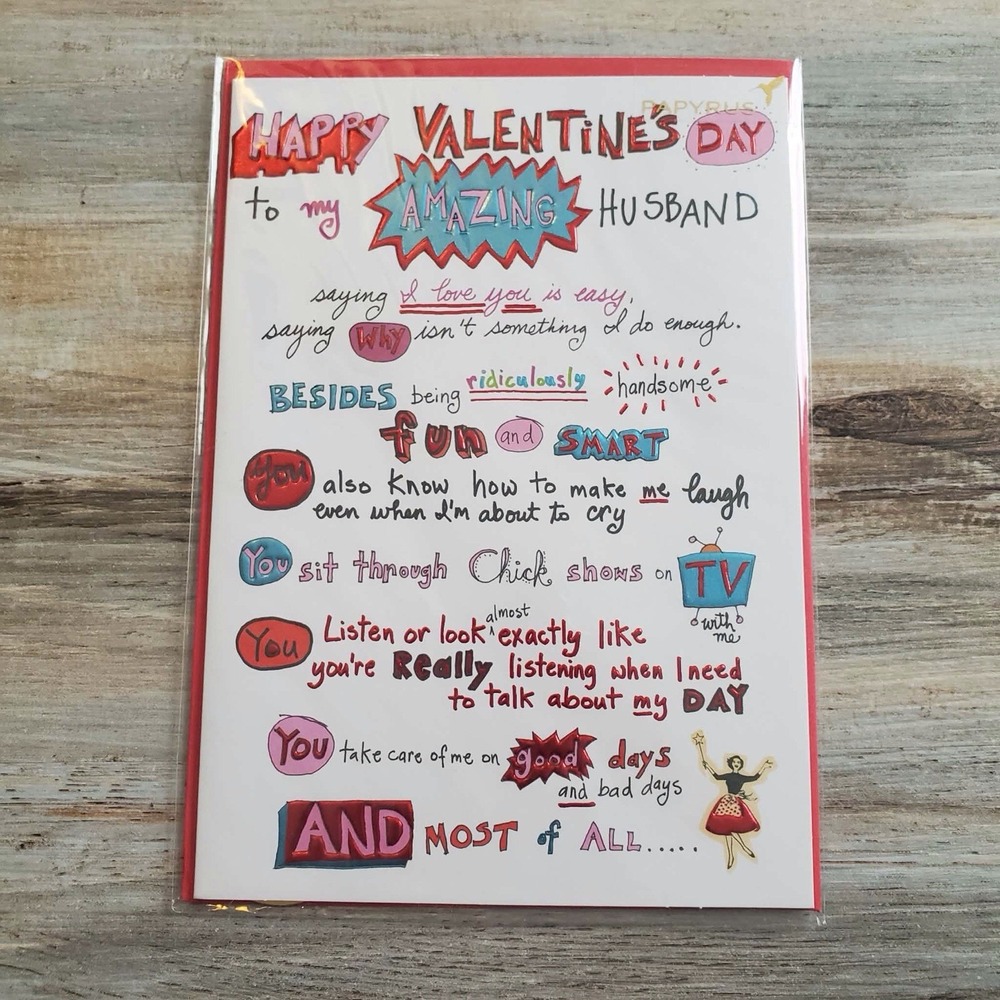 PAPYRUS
HAPPY VALENTiNE'S DAY
to my AMAZING HUSBAND
saying I love you is easy,
saying WHY isn't something I do enough.
BESIDES being ridiculously handsome
fun and SMART
You also know how to make me laugh
even when I'm about to cry
You sit through Chick shows on TV
with
me
almost
You Listen or look ^ exactly like
you're Really listening when I need
to talk about my DAY
You take care of me on good days
and bad days
AND MOST of ALL.....